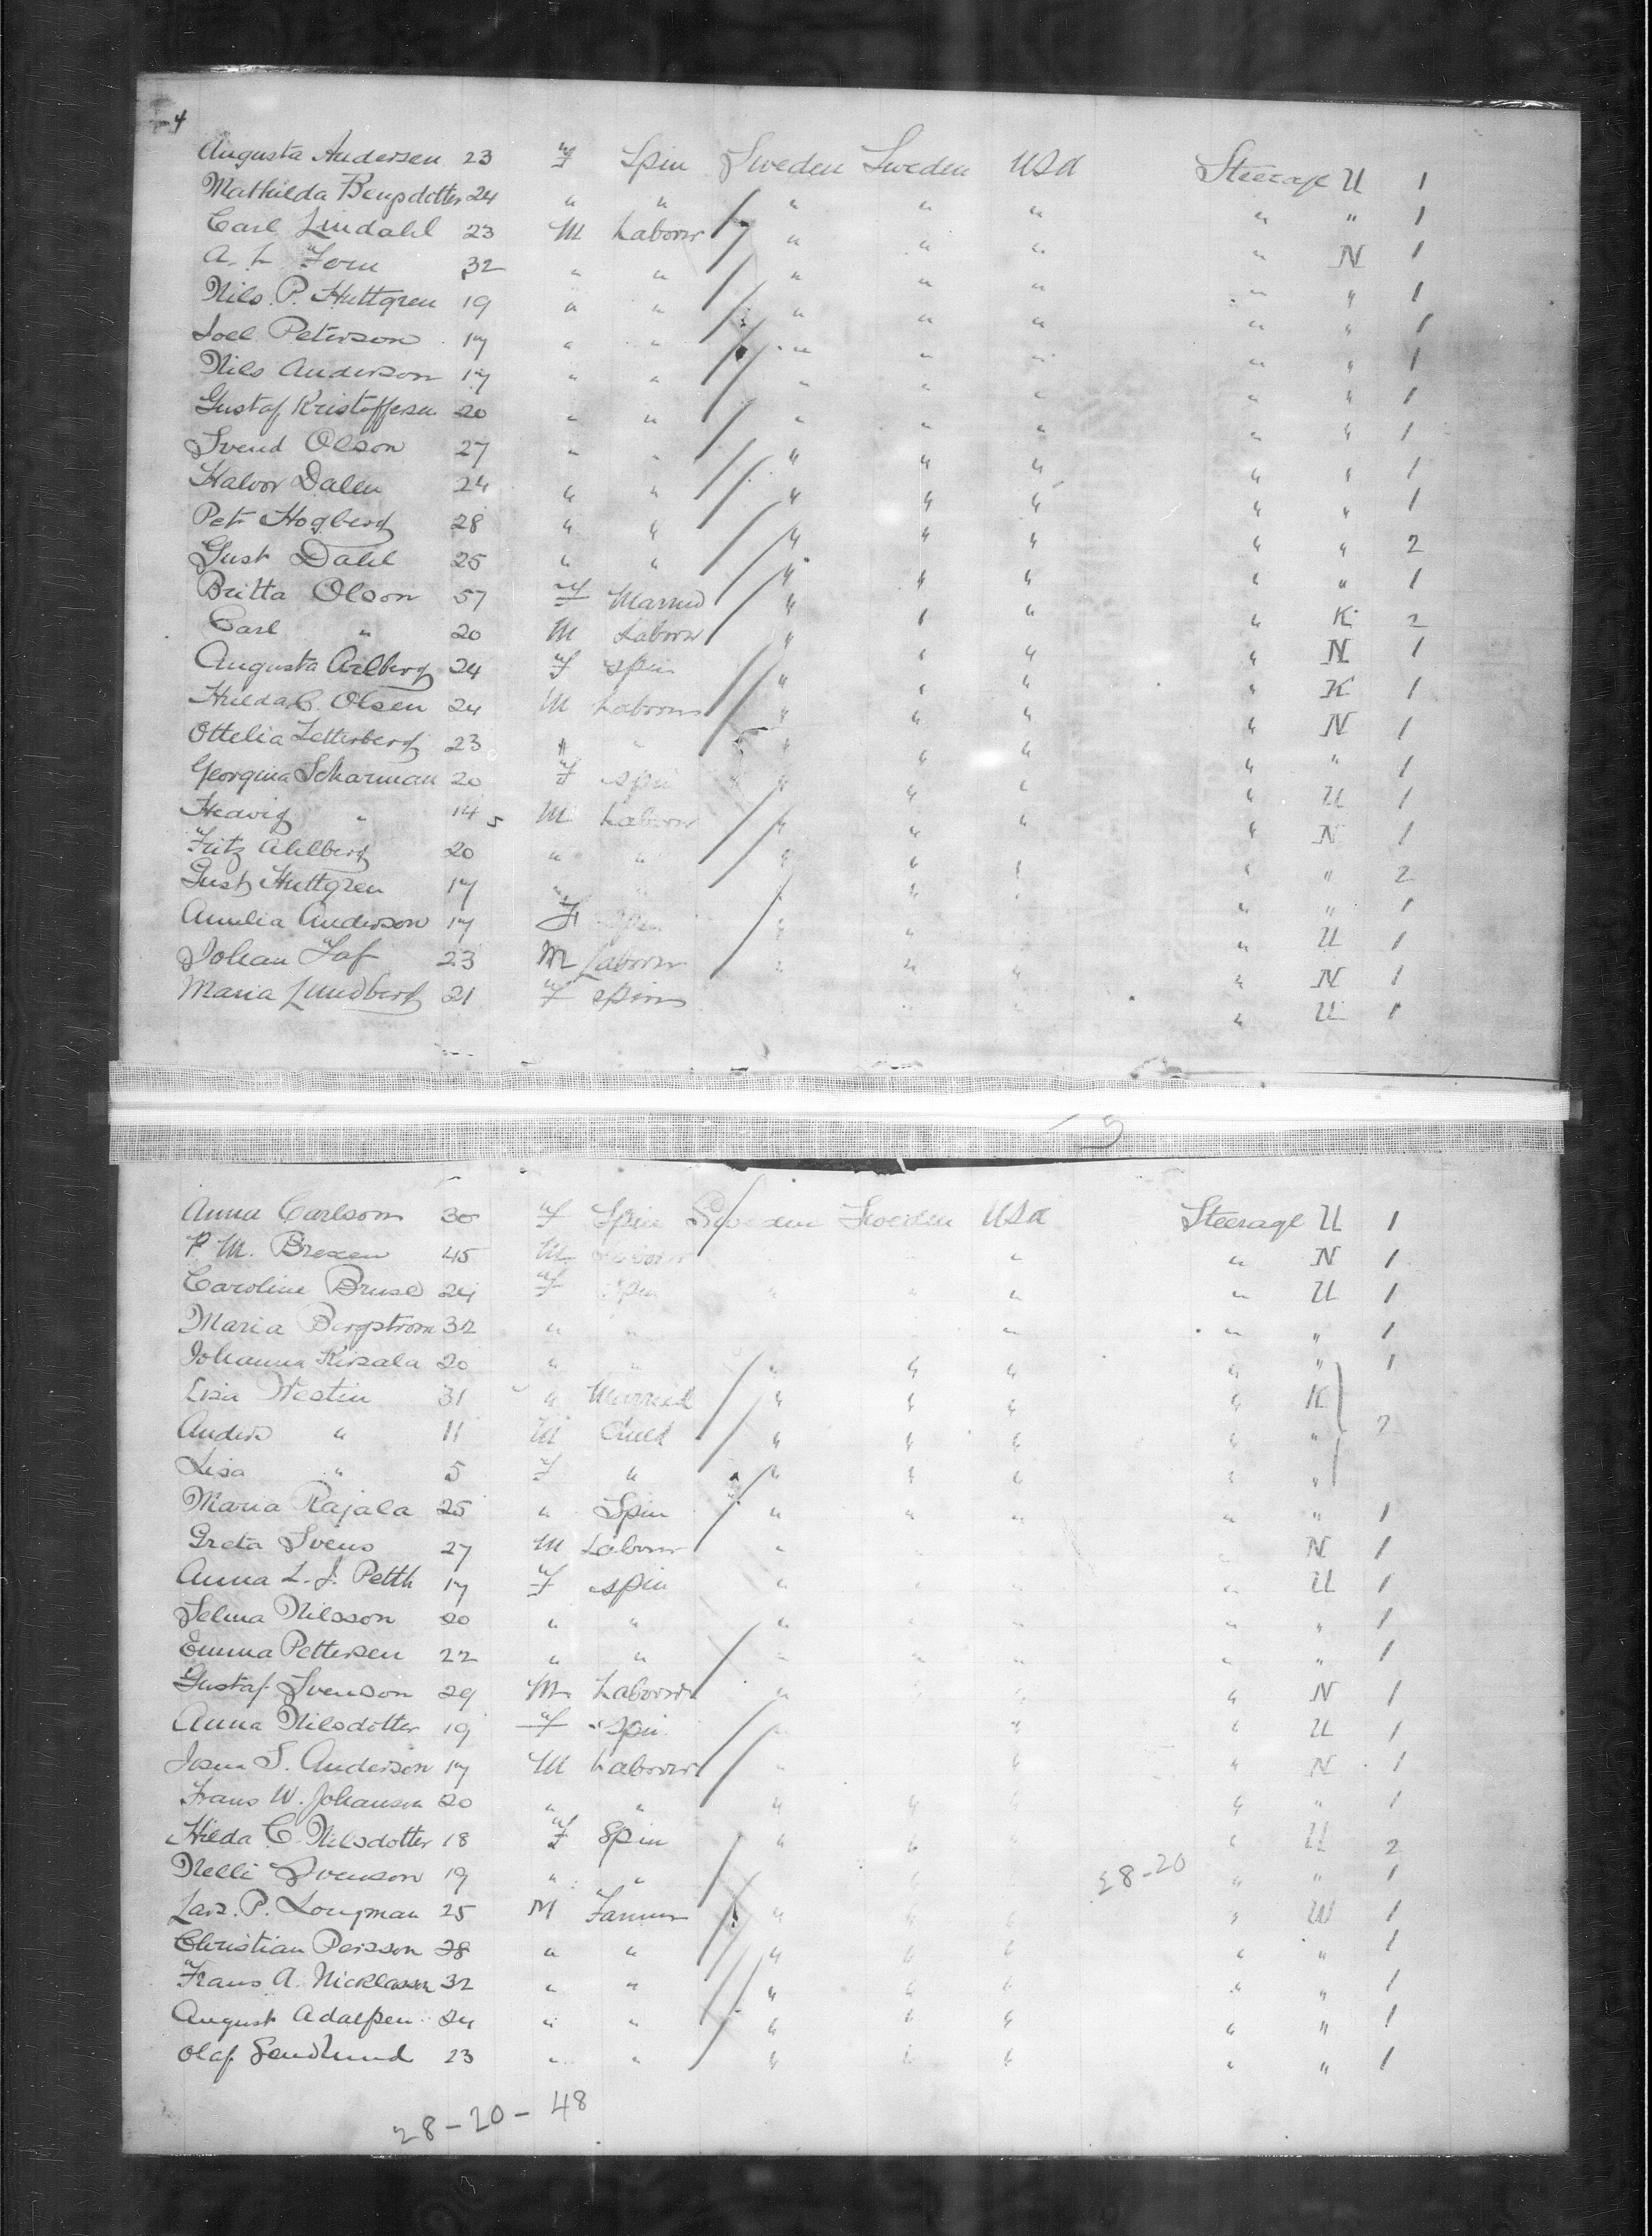 4
Augusta Andersen 23 F Spin Sweden Sweden USA Steerage U 1
Mathilda Bengsdotter 24 " " " " " " " 1
Carl Lindahl 23 M Laborer " " " " N 1
A. L. 32 " " " " " " " 1
Nils. P. Huttgren 19 " " " " " " " 1
Joel Peterson 17 " " " " " " " 1
Nils Anderson 17 " " " " " " " 1
Gustaf Kristoffersen 20 " " " " " " " 1
Svend Olson 27 " " " " " " " 1
Halvor Dalen 24 " " " " " " " 1
Petr Hogberg 28 " " " " " " " 2
Gust Dahl 25 " " " " " " " 1
Britta Olson 57 F Married " " " " K 2
Carl " 20 M Laborer " " " " N 1
Augusta Arlberg 24 F Spin " " " " K 1
Hulda C. Olsen 24 M Laborer " " " " N 1
Ottelia Zetterberg 23 " " " " " " " 1
Georgina Scharman 20 F Spin " " " " U 1
Hedvig " 14 5 M Laborer " " " " N 1
Fritz Ahlberg 20 " " " " " " " 2
Gust Huttgren 17 " " " " " " 1
Amelia Anderson 17 F Spin " " " U 1
Johan Laf 23 M Laborer " " " " N 1
Maria Lundberg 21 F Spin " " " U 1
5
Anna Carlson 30 F Spin Sweden Sweden USA Steerage U 1
P. M. Brexen 45 M Laborer " " N 1
Caroline Bruse 24 F Spin " " " " U 1
Maria Bergstrom 32 " " " " " 1
Johanna Kirsala 20 " " " " " " " 1
Lisa Westin 31 " Married " " " " K
Anders " 11 M Child " " " " " 2
Lisa " 5 F " " " " " "
Maria Rajala 25 " Spin " " " " " 1
Greta Svens 27 M Laborer " " N 1
Anna L. J. Petth 17 F Spin " " " " U 1
Selma Nilsson 20 " " " " " " " 1
Emma Pettersen 22 " " " " " " " 1
Gustaf Svenson 29 M Laborer " " " " N 1
Anna Nilsdotter 19 F Spin " " " U 1
S. Anderson 17 M Laborer " " " N 1
Frans W. Johansen 20 " " " " " " " 1
Hilda C. Nilsdotter 18 F Spin " " " " U 2
Nelli Svenson 19 " " 28-20 " " 1
Lars. P. Longman 25 M Farmer " " " " W 1
Christian Persson 28 " " " " " " " 1
Frans A. Nicklasen 32 " " " " " " " 1
August Adalpen 24 " " " " " " " 1
Olaf Sendlund 23 " " " " " " " 1
28-20-48